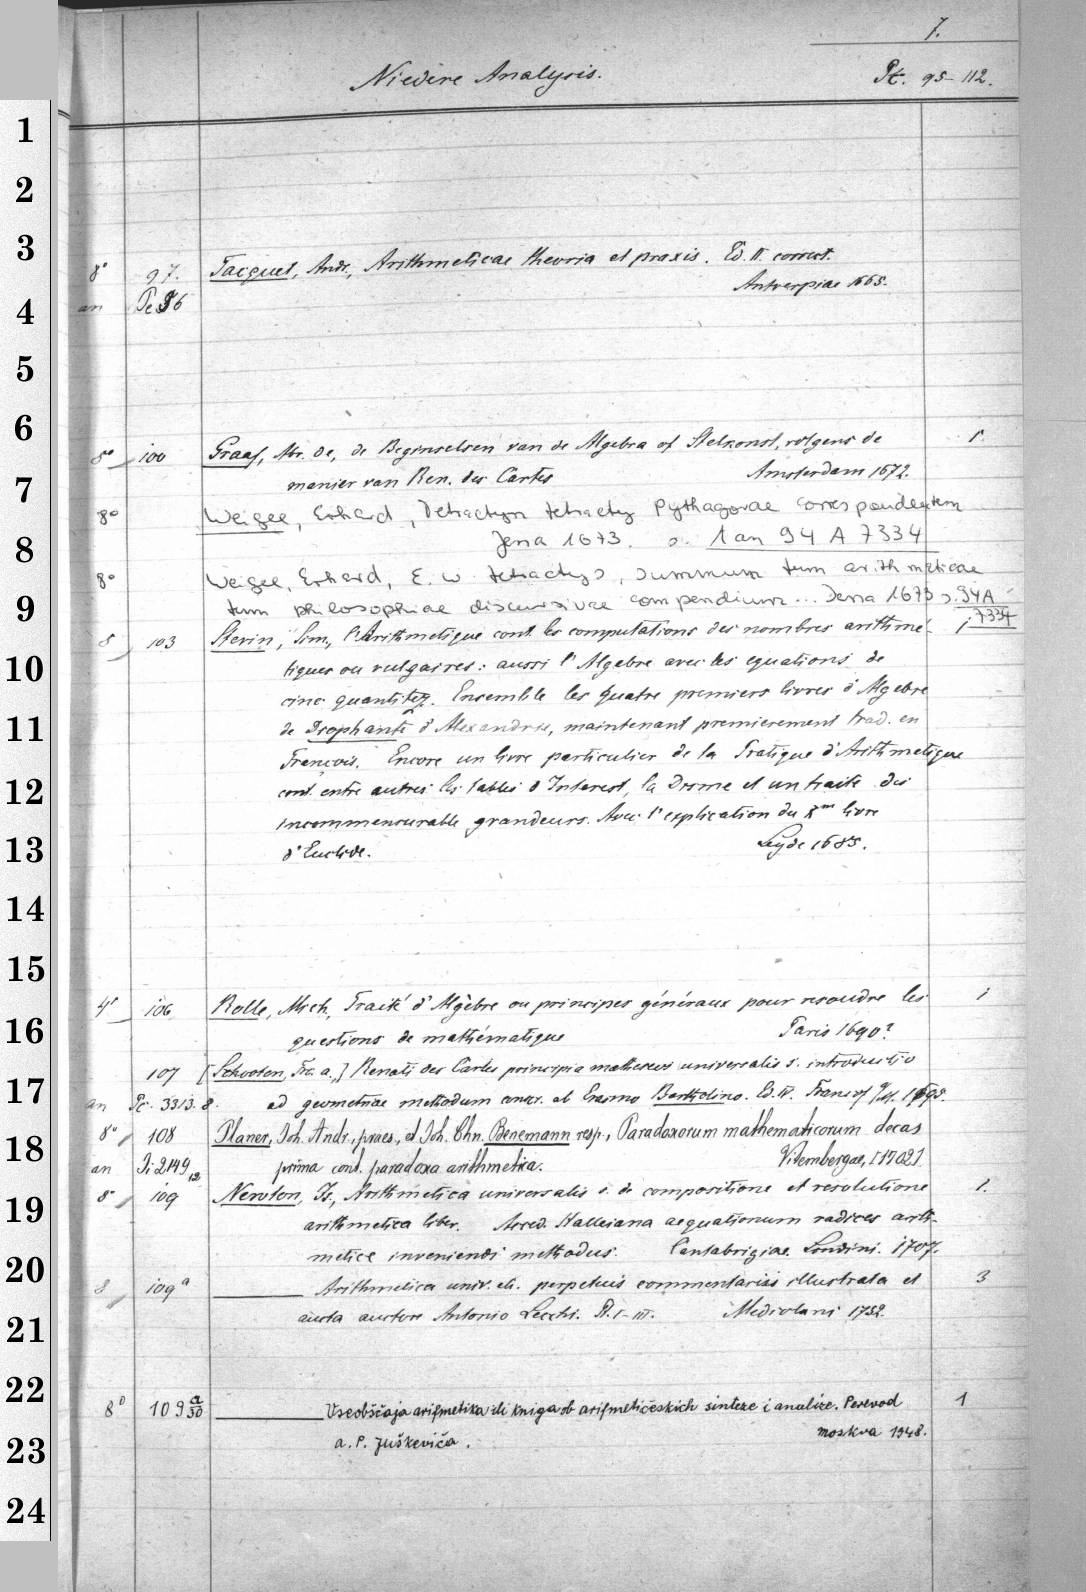 7.
Niedere Analysis. Pt. 95-112.
1
2
3
8° 97. Tacquet, Andr., Arithmeticae theoria et praxis. Ed. II. correct.
an Pe 56 Antverpiae 1665.
4
5
6
8° 100 Graaf, Abr. de, de Beginselen van de Algebra of Stelkonst, volgens de 1
manier van Ren. des Cartes Amsterdam 1672.
7
8° Weigel, Erhard, Tetractyn tetracty Pythagorae correspondentem
Jena 1673. s. 1 an 94 A 7334
8
8° Weigel, Erhard, E. W. tetractys, summum tum arithmeticae
tum philosophiae discursivae compendium... Jena 1673 s. 94 A 7334
9
8 103 Stevin, Sim., l'Arithmetique cont. les computations des nombres arithme 1
tiques ou vulgaires: aussi l'Algebre avec les equations de
10
cinc quantitez. Ensemble les quatre premiers livres d'Algebre
11
de Diophante d'Alexandrie, maintenant premierement trad. en
François. Encore un livre particulier de la Pratique d'Arithmetique
12
cont. entre autres les tables d'Interest, la Disme et un traité des
incommensurable grandeurs. Avec l'explication du Xme livre
13
d'Euclide. Leyde 1685.
14
15
4° 106 Rolle, Mich., Traité d'Algèbre ou principes généraux pour resoudre les 1
16
questions de mathématique Paris 1690.
107 [Schooten, Fr. a,] Renati des Cartes principia matheseos universalis s. introductio
17
an Pc. 3313. 8. ad geometriae methodum conscr. ab Erasmo Bartholino. Ed. IV. Francof 1695.
8° 108 Planer, Joh. Andr., praes., et Joh. Chn. Benemann resp., Paradoxorum mathematicorum decas
18
an Ji 2149,12 prima cont. paradoxa arithmetica. Vitembergae, [1702]
8° 109 Newton, Is., Arithmetica universalis s. de compositione et resolutione 1.
19
arithmetica liber. Acced. Halleiana aequationum radices arith-
metice inveniendi methodus. Cantabrigiae. Londini. 1707.
20
8 109a Arithmetica univ. etc. perpetuis commentariis illustrata et 3
aucta auctore Antonio Lecchi. Pt. I-III. Mediolani 1752.
21
22
8° 109 a/50 Vseobščaja arifmetika ili kniga ob arifmetičeskich sinteze i analize. Perevod 1
A. P. Juškeviča. Moskva 1948.
23
24